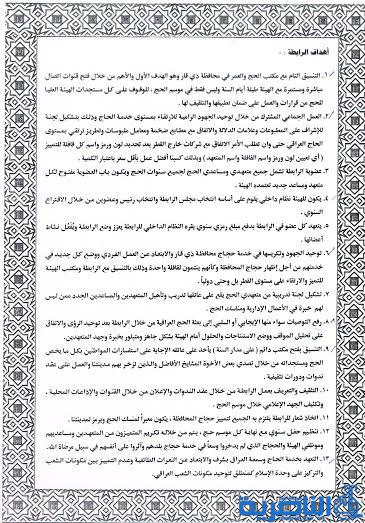 أهداف الرابطة :-
١. التنسيق التام مع مكتب الحج والعمر في محافظة ذي قار وهو الهدف الأول والأهم من خلال فتح قنوات اتصال
مباشرة ومستمرة مع الهيئة طيلة أيام السنة وليس فقط في موسم الحج ، للوقوف على كل مستجدات الهيئة العليا
للحج من قرارات والعمل على ضمان تطبيقها والتثقيف لها .
٢. العمل الجماعي المشترك من خلال توحيد الجهود الرامية للارتقاء بمستوى خدمة الحاج وذلك بتشكيل لجنة
للإشراف على المطبوعات وعلامات الدلالة والاتفاق مع مطابع ضخمة ومعامل ملبوسات وتطريز ترتقي بمستوى
الحاج العراقي حتى وان تطلب الأمر الاتفاق مع شركات خارج القطر بعد تحديد لون ورمز واسم كل قافلة للتمييز
( أي تعيين لون ورمز واسم القافلة واسم المتعهد ) وبذلك كسبنا أفضل عمل بأقل سعر باعتبار الكمية .
٣. عضوية الرابطة تشمل جميع متعهدي ومساعدي الحج لجميع سنوات الحج ويكون باب العضوية مفتوح لكل
متعهد ومساعد جديد تعتمده الهيئة .
٤. يكون للهيئة نظام داخلي يقوم على أساسه انتخاب مجلس الرابطة وانتخاب رئيس وعضوين من خلال الاقتراع
السنوي .
٥. يتعهد كل عضو في الرابطة بدفع مبلغ رمزي سنوي يقره النظام الداخلي للرابطة يعزز وضع الرابطة ويُفعّل نشاط
أعضائها .
٦. توحيد الجهود وتكريسها في خدمة حجاج محافظة ذي قار والابتعاد عن العمل الفردي ووضع كل جديد في
خدمتهم من أجل إظهار حجاج المحافظة وكأنهم ينتمون لقافلة واحدة وذلك بالتنسيق مع الرابطة ومكتب الهيئة
للتميز والارتقاء على مستوى القطر بل وحتى دولياً .
٧. تشكيل لجنة تدريبية من متعهدي الحج يقع على عاتقها تدريب وتأهيل المتعهدين والمساعدين الجدد ممن ليس
لهم خبرة في الأعمال الإدارية ومناسك الحج .
٨. رفع التوصيات سواء منها الإيجابي أو السلبي إلى بعثة الحج العراقية من خلال الرابطة بعد توحيد الرؤى والاتفاق
على تحليل الموقف ووضع الاستنتاجات والحلول أمام الهيئة بشكل جاهز ومتبلور بخبرة وجهد المتعهدين.
٩. التنسيق بفتح مكتب دائم ( على مدار السنة ) يأخذ على عاتقه الإجابة على استفسارات المواطنين بكل ما يخص
الحج ومستجداته من خلال تصدي بعض الأخوة المشايخ الأفاضل والذين تزخر بهم مدينتنا والعمل على عقد
ندوات ودورات تثقيفية .
١٠. التثقيف والتعريف بعمل الرابطة من خلال عقد الندوات والإعلان من خلال القنوات والإذاعات المحلية ،
وتكثيف الجهد الإعلامي خلال موسم الحج .
١١. اتخاذ شعار للرابطة يلتزم به الجميع لتمييز حجاج المحافظة ، يكون معبراً لمنسك الحج ورمز لمدينتنا .
١٢. تنظيم حفل سنوي مع نهاية كل موسم حج ، يتم من خلاله تكريم المتميزون من المتعهدين ومساعديهم
وموظفي الهيئة والحجاج الذي لم يدخروا وسعاً في خدمة حجاج بلدهم وآثروا على أنفسهم في سبيل مرضاة الله .
١٣. التعهد بخدمة الحاج وسمعة العراق بشرف والابتعاد عن النعرات الطائفية وعدم التمييز بين مكونات الشعب
والتركيز على وحدة الإسلام كمنطلق لتوحيد مكونات الشعب العراقي.
الناصرية